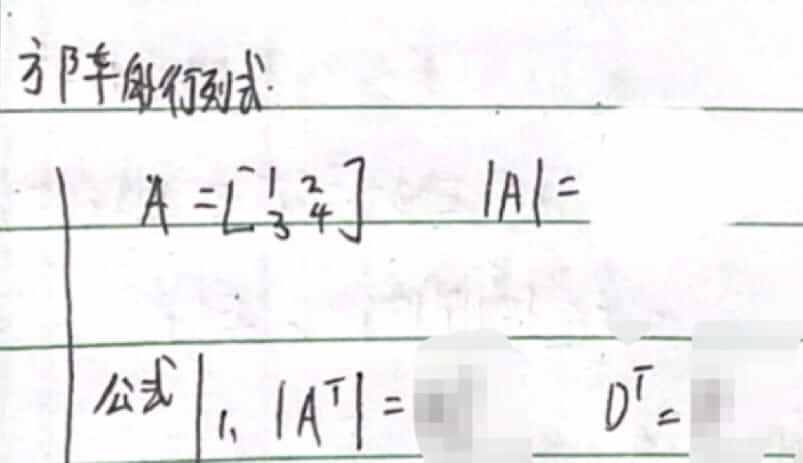 方阵的行列式
A = [1 2 3 4] |A| =
公式 1. |Aᵀ| = Dᵀ =